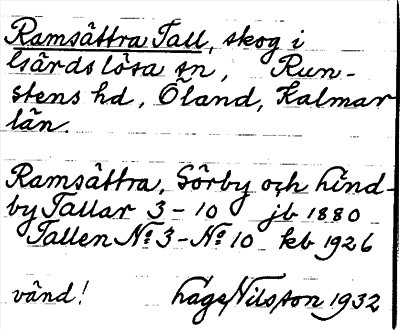 Ramsättra Tall, skog i
Gärdslösa sn, Run-
stens hd, Öland, Kalmar
län.
Ramsättra, Sörby och Hind-
by Tallar 3-10 jb 1880
Tallen No 3-No 10 kb 1926
vänd! Håge Nilsson 1932